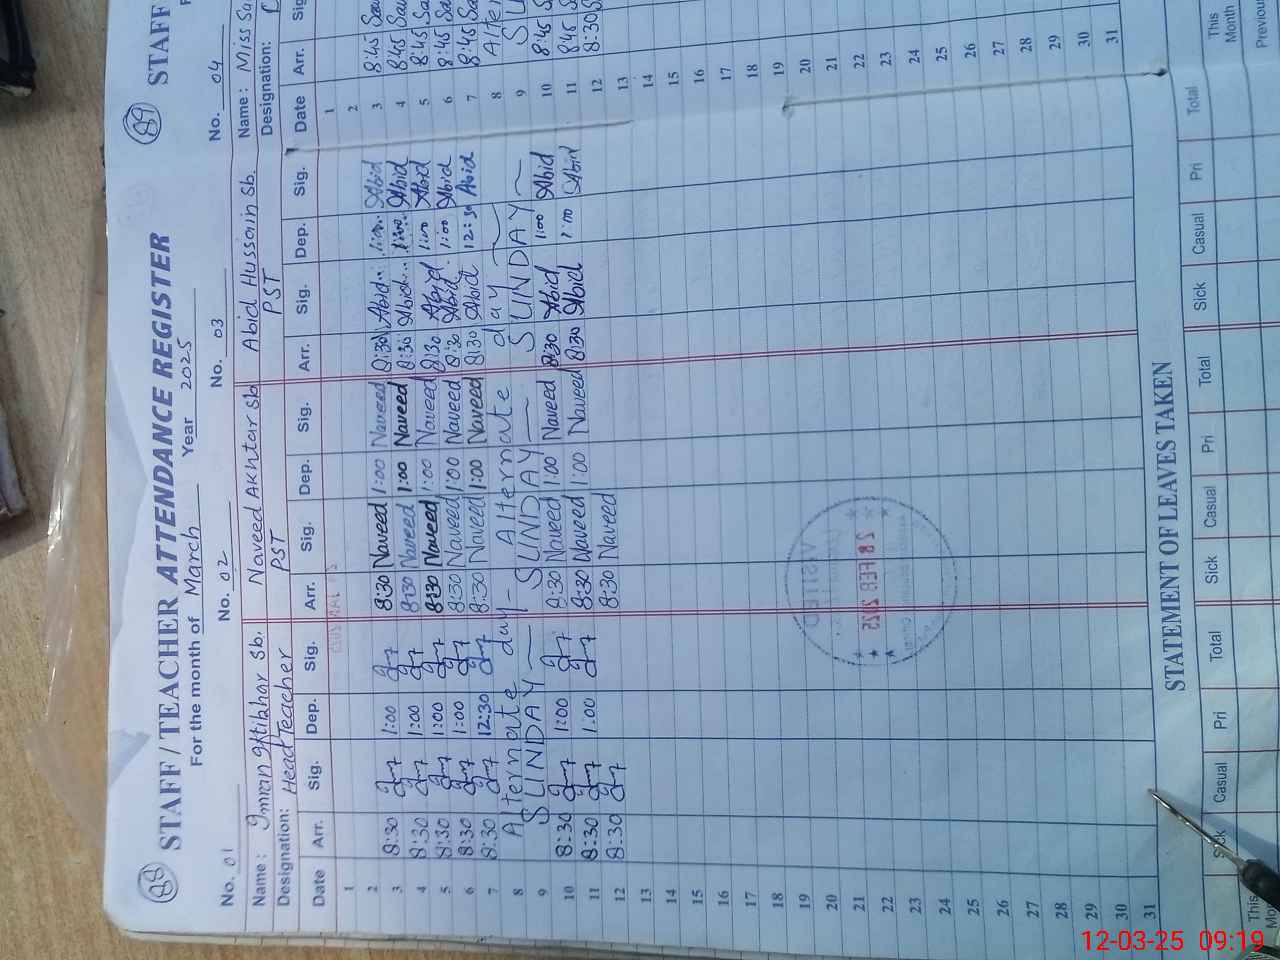 88
STAFF / TEACHER ATTENDANCE REGISTER
For the month of March Year 2025
No. 01 No. 02 No. 03
Name: Imran Iftikhar Sb. Naveed Akhtar Sb Abid Hussain Sb.
Designation: Head Teacher PST PST
Date Arr. Sig. Dep. Sig. Arr. Sig. Dep. Sig. Arr. Sig. Dep. Sig.
1
2
3 8:30 1:00 8:30 Naveed 1:00 Naveed 8:30 Abid 1:00 Abid
4 8:30 1:00 8:30 Naveed 1:00 Naveed 8:30 Abid 1:00 Abid
5 8:30 1:00 8:30 Naveed 1:00 Naveed 8:30 Abid 1:00 Abid
6 8:30 1:00 8:30 Naveed 1:00 Naveed 8:30 Abid 1:00 Abid
7 8:30 12:30 8:30 Naveed 1:00 Naveed 8:30 Abid 12:30 Abid
8 Alternate day - Alternate day
9 SUNDAY — SUNDAY — SUNDAY —
10 8:30 1:00 8:30 Naveed 1:00 Naveed 8:30 Abid 1:00 Abid
11 8:30 1:00 8:30 Naveed 1:00 Naveed 8:30 Abid 1:00 Abid
12 8:30 8:30 Naveed
13
14
15
16
17
18
19
20
21
22
23
24
25
26
27
28
29
30
31
VISITED
28 FEB 2025
STATEMENT OF LEAVES TAKEN
Sick Casual Pri Total Sick Casual Pri Total Sick Casual Pri Total
This
89
STAFF
No. 04
Name: Miss
Designation:
Date Arr. Sig
1
2
3 8:45
4 8:45
5 8:45
6 8:45
7 8:45
8 Alter
9 SU
10 8:45
11 8:45
12 8:30
13
14
15
16
17
18
19
20
21
22
23
24
25
26
27
28
29
30
31
This
Month
Previous
12-03-25 09:19